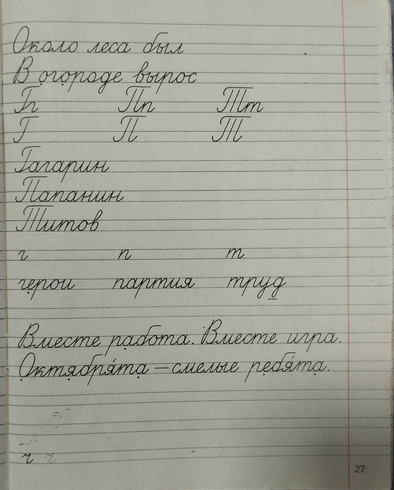 Около леса был
В огороде вырос
Гг Пп Тт
Г П Т
Гагарин
Папанин
Титов
г п т
герои партия труд
Вместе работа. Вместе игра.
Октября́та — смелые ребя́та.
ч ч
27